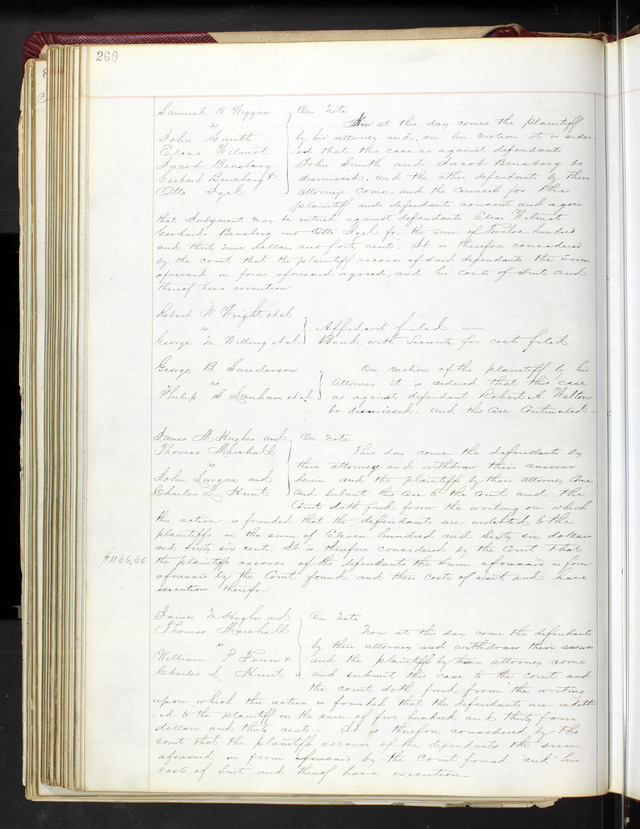 260
Samuel B Wiggan
vs
John Smith
Elias Wilmot
Jacob Bensberg
Gerhard Bensberg &
Otto Igel
On Note
Now at this day comes the plaintiff
by his attorney and on his motion it is order-
-ed that this case as against defendants
John Smith and Jacob Bensberg be
dismissed. and the other defendants by their
attorney come, and the counsel for the
plaintiff and defendants consent and agree
that Judgment may be entered against defendants Elias Wilmot
Gerhard Bensberg and Otto Igel for the sum of Twelve hundred
and thirty nine dollars and forty cents. It is therefore considered
by the court that the plaintiff recover of said defendants the sum
aforesaid in form aforesaid agreed, and his costs of Suit and
thereof have execution
Robert W Wright et al
vs
George M Willing et al
Affidavit filed
Bond with Security for costs filed
George B Sanderson
vs
Philip S Lanham et al
On motion of the plaintiff by his
Attorney it is ordered that this case
as against defendant Robert A. Walton
be dismissed. and this case continued-
James M Hughes and
Thomas Marshall
vs
John and
Charles L Hunt
On Note
This day come the defendants by
their attorney and withdraw their answer
herein and the plaintiffs by their attorney come
and submit this case to the Court and the
Court doth find from the writing on which
this action is founded that the defendants are indebted to the
plaintiffs in the sum of Eleven hundred and Sixty six dollars
and Sixty six cents. It is therefore considered by the Court that
$1166.66
the plaintiffs recover of the defendants the sum aforesaid in form
aforesaid by the Court found and their costs of Suit and have
execution therefor
James M Hughes and
Thomas Marshall
vs
William P &
Charles L Hunt
On Note
Now at this day come the defendants
by their attorney and withdraw their answer
and the plaintiffs by their attorney come
and submit this case to the Court and
the court doth find from the writing
upon which this action is founded that the defendants are indebt-
-ed to the plaintiff in the sum of five hundred and thirty four
dollars and thirty cents - It is therefore considered by the
court that the plaintiffs recover of the defendants the sum
aforesaid in form aforesaid by the Court found and his
costs of Suit and thereof have execution-